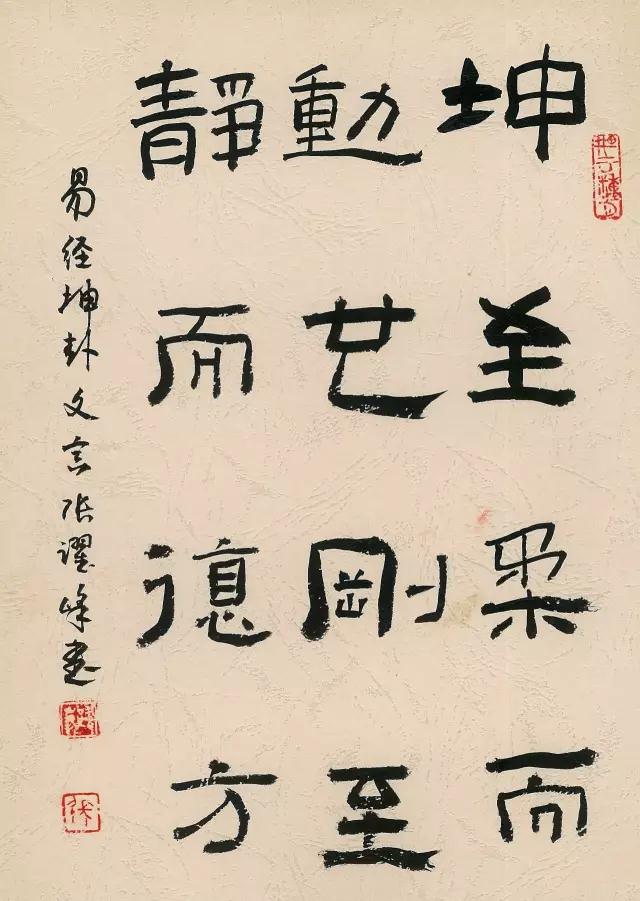 坤至柔而
動也剛至
靜而德方
易经坤卦文言张峰书